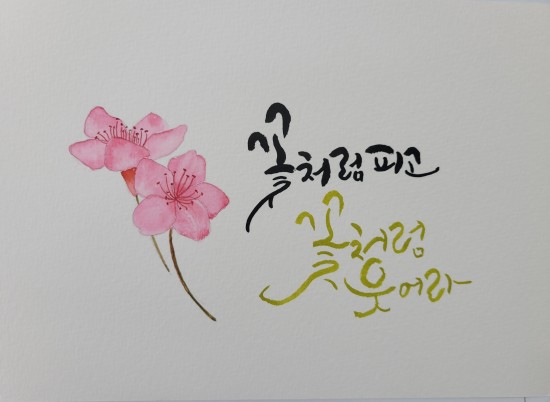 꽃처럼피고
꽃처럼
웃어라